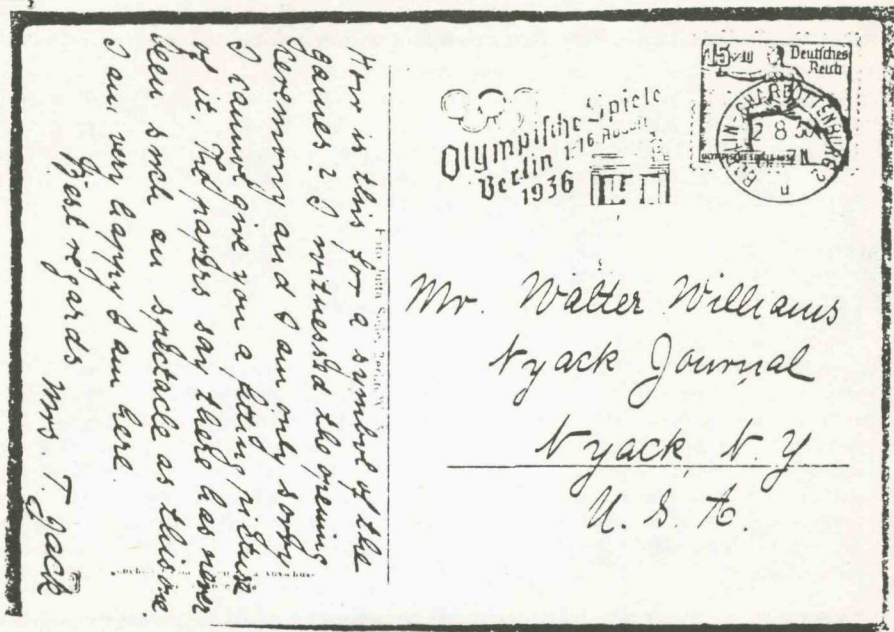 How is this for a symbol of the
games? I witnessed the opening
ceremony and I am only sorry
I cannot give you a fitting picture
of it. The papers say there has never
been such an spectacle as this one.
I am very happy I am here.
Best regards Mrs T. Jack
Olympische Spiele
Berlin 1.-16. August
1936
15
Deutsches
Reich
BERLIN-CHARLOTTENBURG 2
2 8 36
u
Mr. Walter Williams
Nyack Journal
Nyack N. Y
U. S. A.